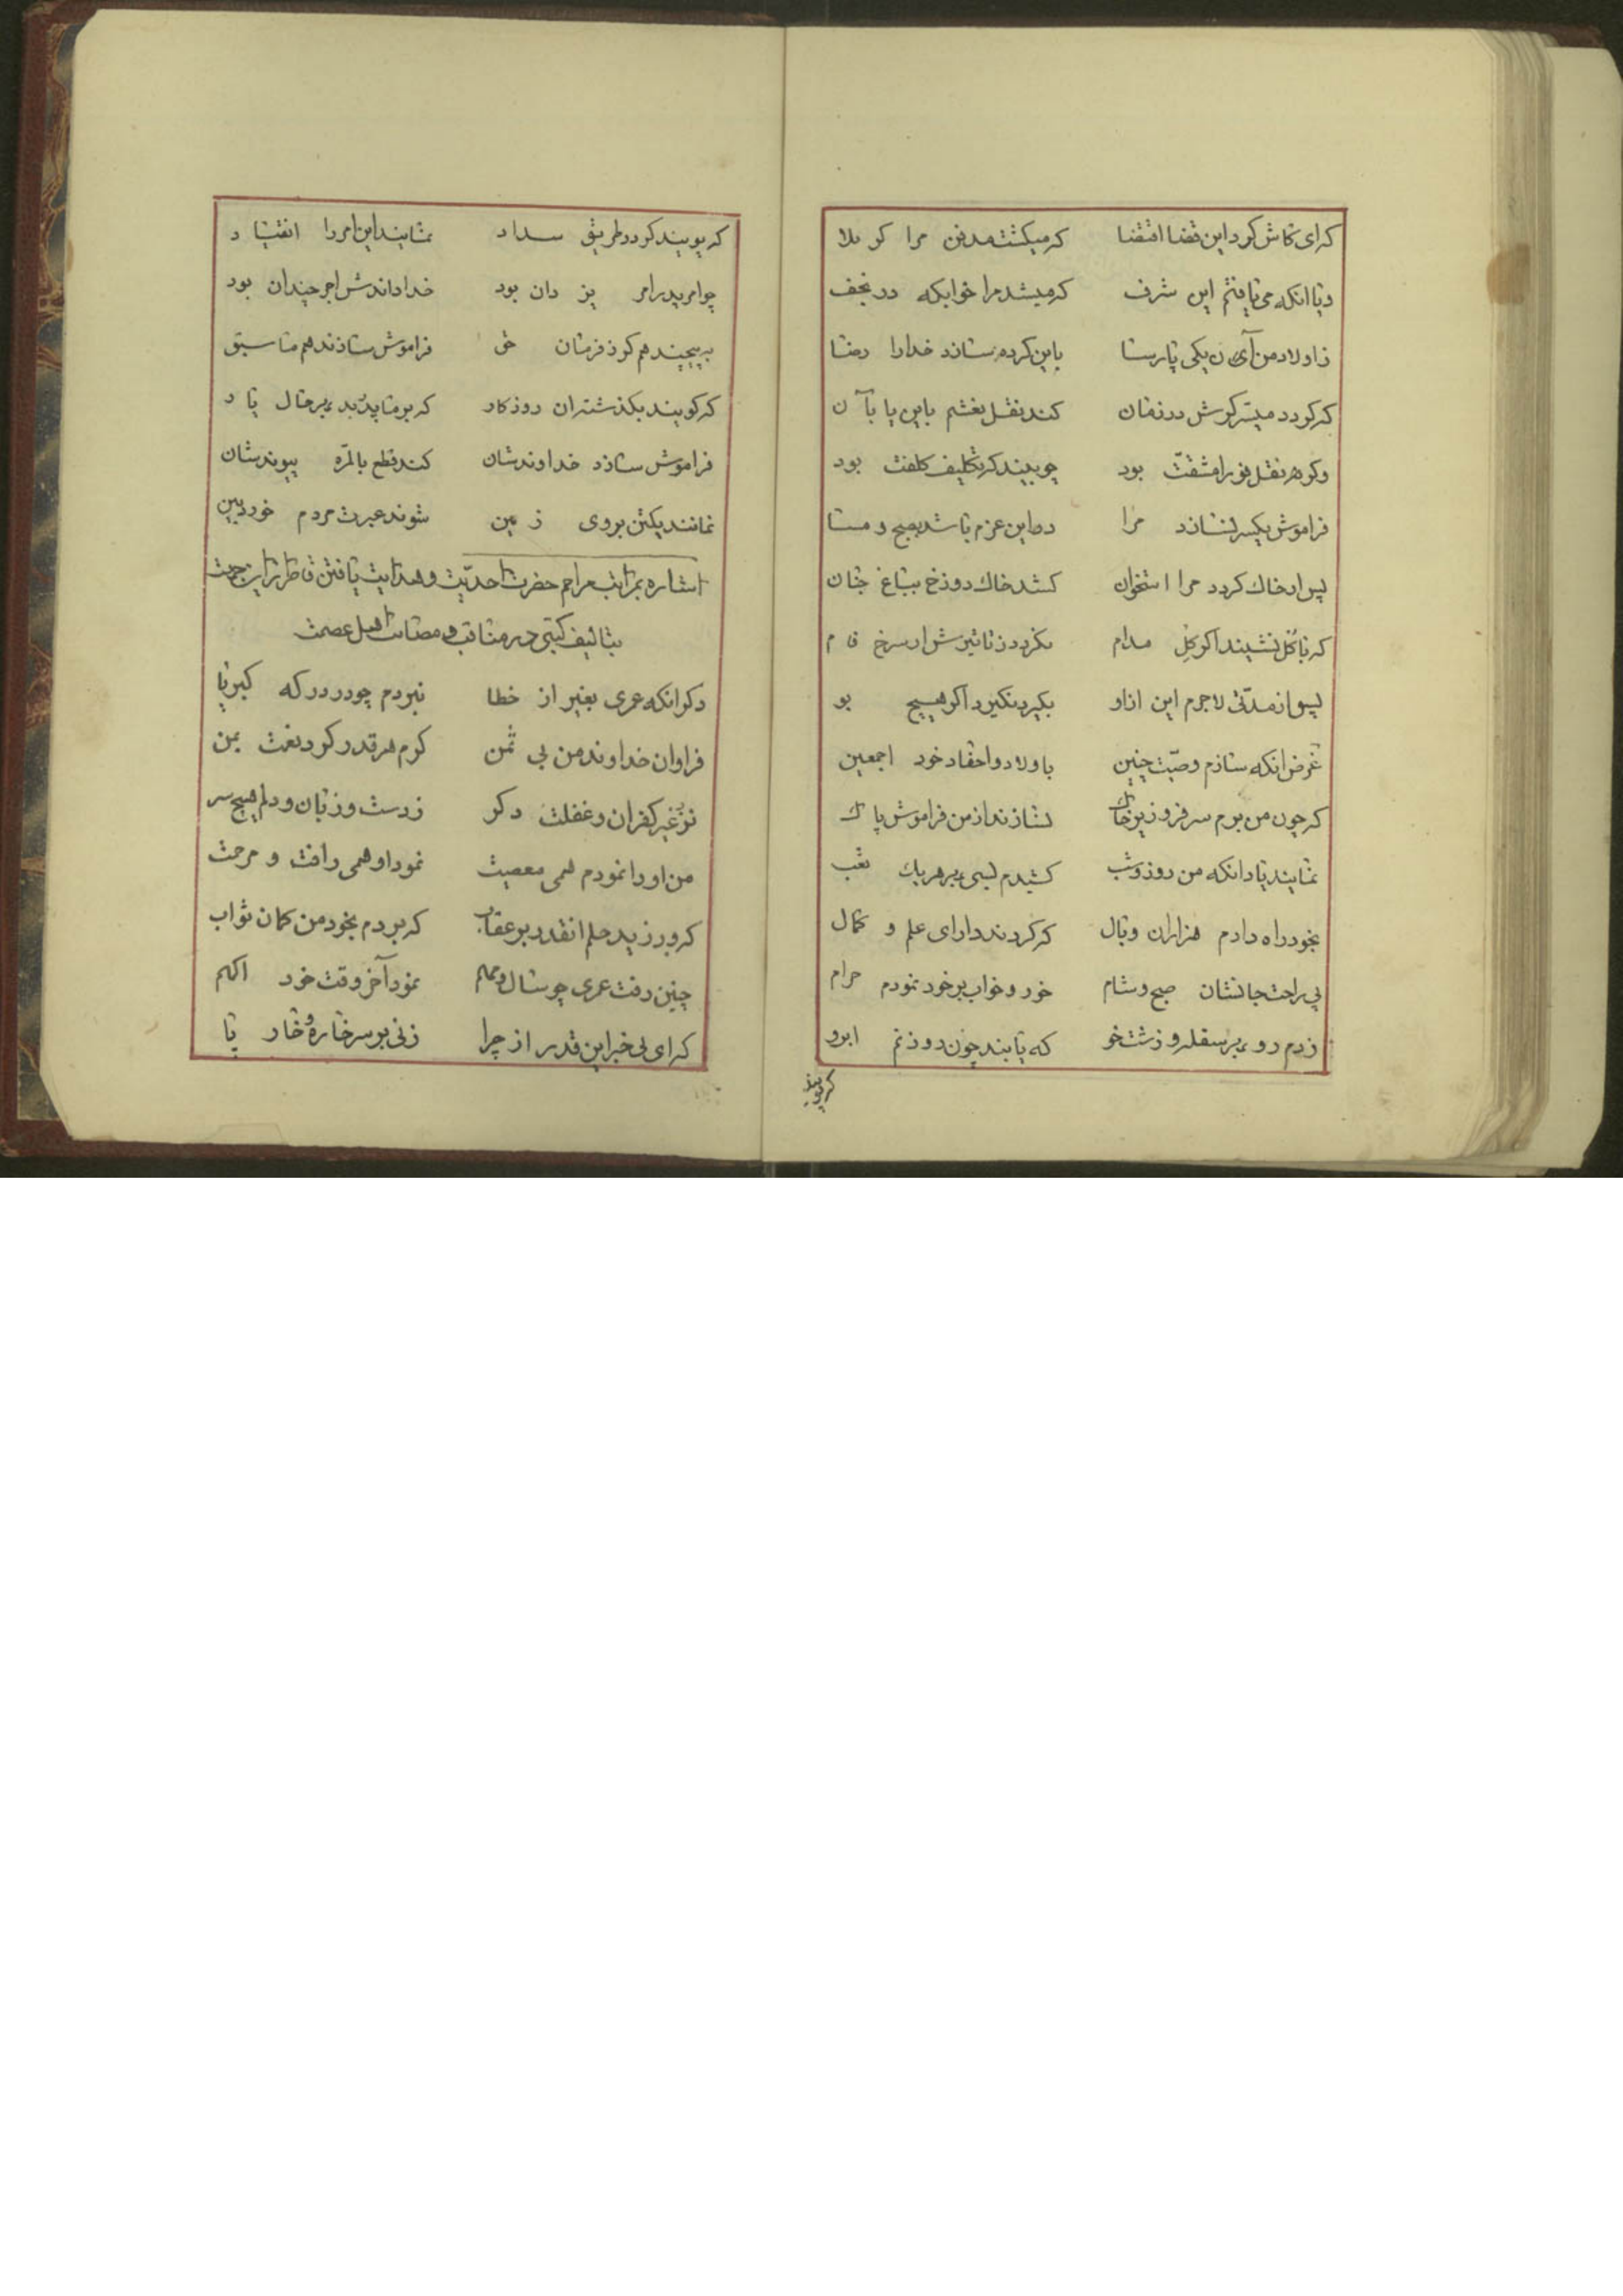 که ای کاش کرد این قضا اقتضا که میکشت مدفن مرا کربلا
و یا انکه می یافتم این شرف که میشد مرا خوابکه در نجف
ز اولاد من آن یکی پارسا باین کرده سازد خدا را رضا
که کردد میسر کرش در زمان کند نقل نعشم باین یا بآن
وکر هر نقل فورا مشقت بود چو بیند که تکلیف کلفت بود
فراموش یکسر نسازد مرا در این عزم باشد بصبح و مسا
پس ار خاک کردد مرا استخوان کشد خاک دوزخ بباغ جنان
که با کل نشیند اکر کِل مدام نکردد ز تاثیرش ار سرخ فام
پس از مدتی لاجرم این از او بکیرد نکیرد اکر هیچ بو
غرض انکه سازم وصیت چنین باولاد و احفاد خود اجمعین
که چون من برم سر فرو زیر خاک نسازند از من فراموش پاک
نمایند یاد انکه من روز و شب کشیدم بسی بر هر یک تعب
بخود راه دادم هزاران وبال که کردند دارای علم و کمال
پی راحت جانشان صبح و شام خور و خواب بر خود نمودم حرام
زدم رو بر سفله و زشت خو که یابند چون روزنم ابرو
که پویند
که پویند کر در طریق سداد نمایند این امر را انقیاد
چو امر پدر امر یزدان بود خدا داندش اجر چندان بود
بپیچند هم کر ز فرمان حق فراموش سازند هم ما سبق
که کویند بکذشت ران روزکار که بر ما پدر بد بر حال یاد
فراموش سازد خداوندشان کند قطع بالمره پیوندشان
نمانند یکتن بروی زمین شوند عبرت مردم خوردبین
اشاره بمراتب مراحم حضرت احدیت و هدایت یافتن قاطر از این جهت
بتالیف کتبی در مناقب و مصائب اهل عصمت
دکر انکه عمری بغیر از خطا نبردم چو در درکه کبریا
فراوان خداوند من بی ثمن کرم هر قدر کرد نعمت بمن
نزد غیر کفران و غفلت دکر ز دست و زبان و دلم هیچ سر
من او را نمودم همی معصیت نمود او همی رافت و مرحمت
که ورزید حلم انقدر بر عقاب که بردم بخود من کمان ثواب
چنین رفت عمری چو سال و مهم نمود آخر وقت خود اکهم
که ای بی خبر این قدر از چرا زنی بر سر خاره و خار پا